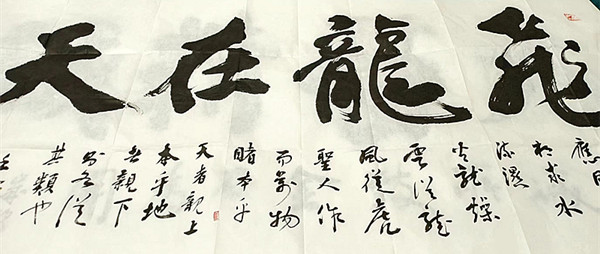 飛龍在天
應同
相求水
流濕
火就燥
雲從龍
風從虎
聖人作
而萬物
睹本乎
天者親上
本乎地
者親下
則各從
其類也